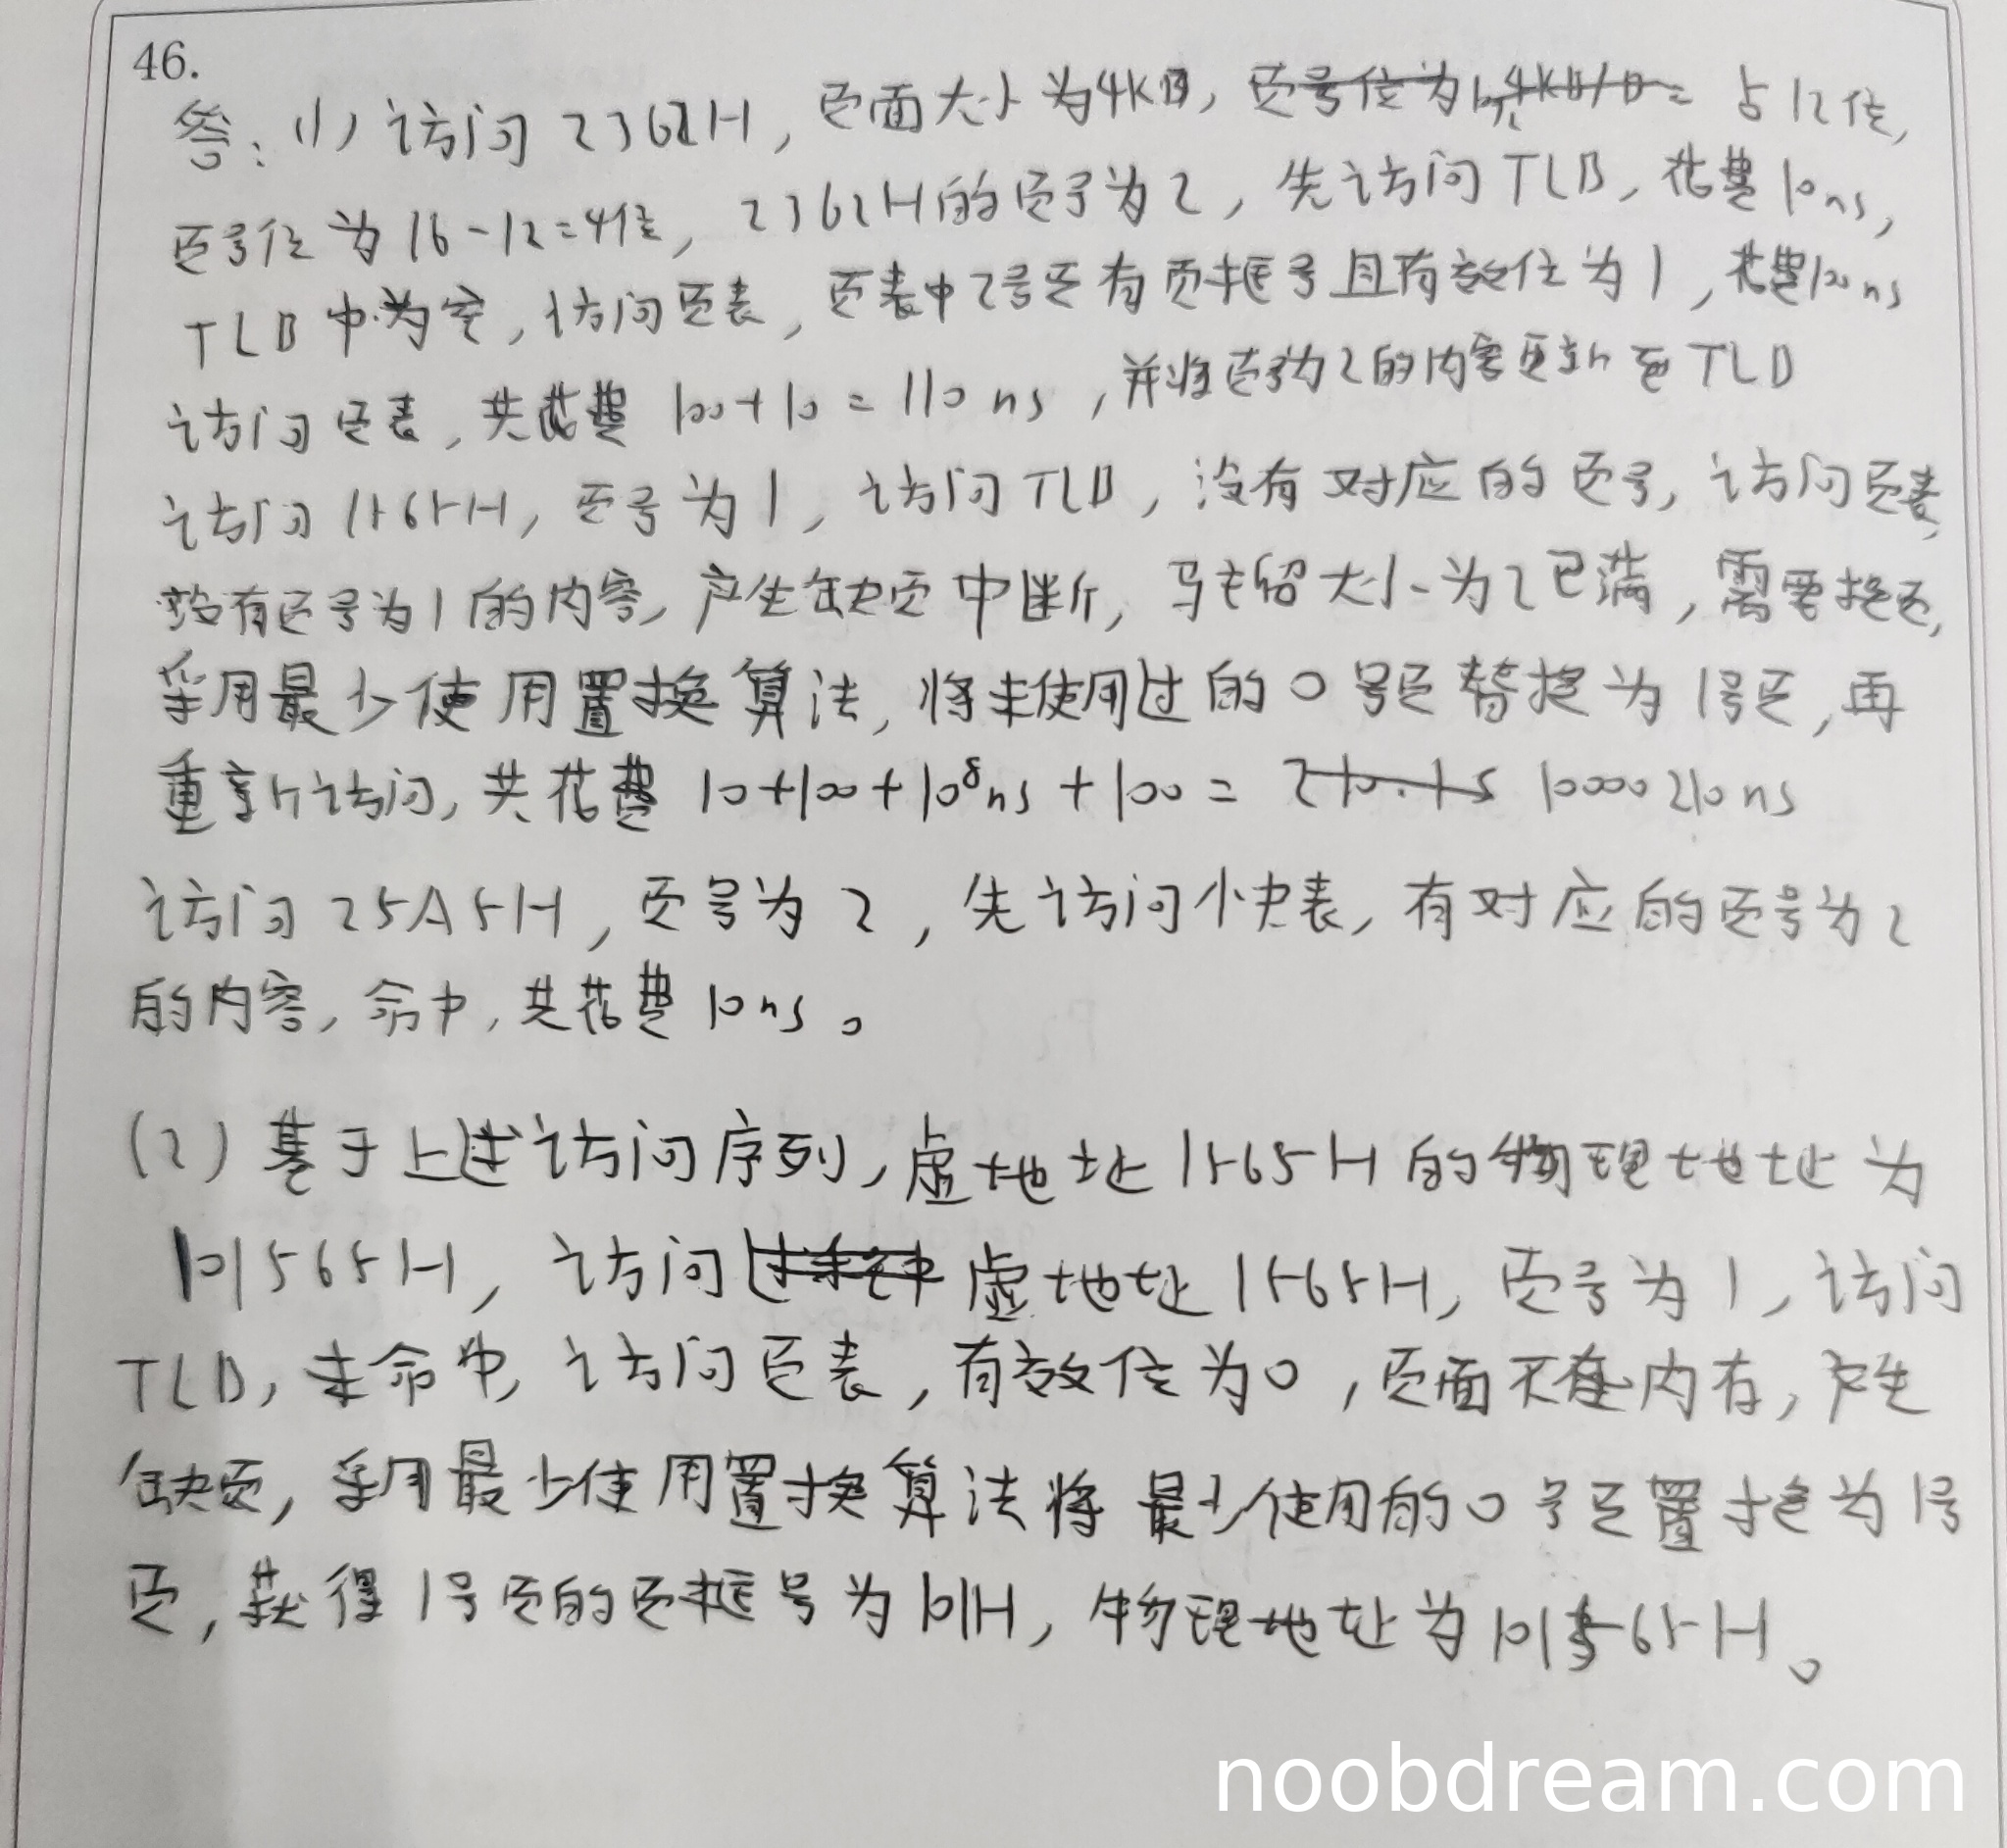 46.
答：(1) 访问 2362H，页面大小为4KB，占12位，
页号位为16-12=4位，2362H的页号为2，先访问TLB，花费10ns，
TLB中为空，访问页表，页表中2号页有页框号且有效位为1，花费100ns
访问页表，共花费 100+10=110ns，并将页号为2的内容更新至TLB
访问1565H，页号为1，访问TLB，没有对应的页号，访问页表，
没有页号为1的内容，产生缺页中断，驻留大小为2已满，需要换页，
采用最少使用置换算法，将未使用过的0号页替换为1号页，再
重新访问，共花费 10+100+10⁸ns+100= 10000210ns
访问25A5H，页号为2，先访问快表，有对应的页号为2
的内容，命中，共花费10ns。
(2) 基于上述访问序列，虚地址1565H的物理地址为
101565H，访问虚地址1565H，页号为1，访问
TLB，未命中，访问页表，有效位为0，页面不在内存，产生
缺页，采用最少使用置换算法将最少使用的0号页置换为1号
页，获得1号页的页框号为101H，物理地址为101565H。
noobdream.com